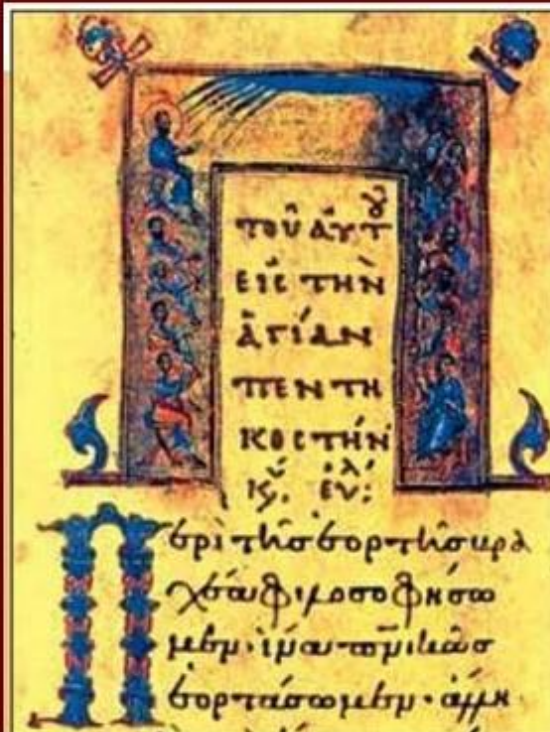 ΤΟῦ ἀΥΤȣ
ΕΙΣ ΤΗῊΝ
ἉΓΊΑΝ
ΠΕΝΤΗ
ΚΟΣΤΉΝ
Περὶ τῆς ἑορτῆς βρα
χέα φιλοσοφήσω
μεν· ἵνα πνικῶς
ἑορτάσωμεν· ἄλλη